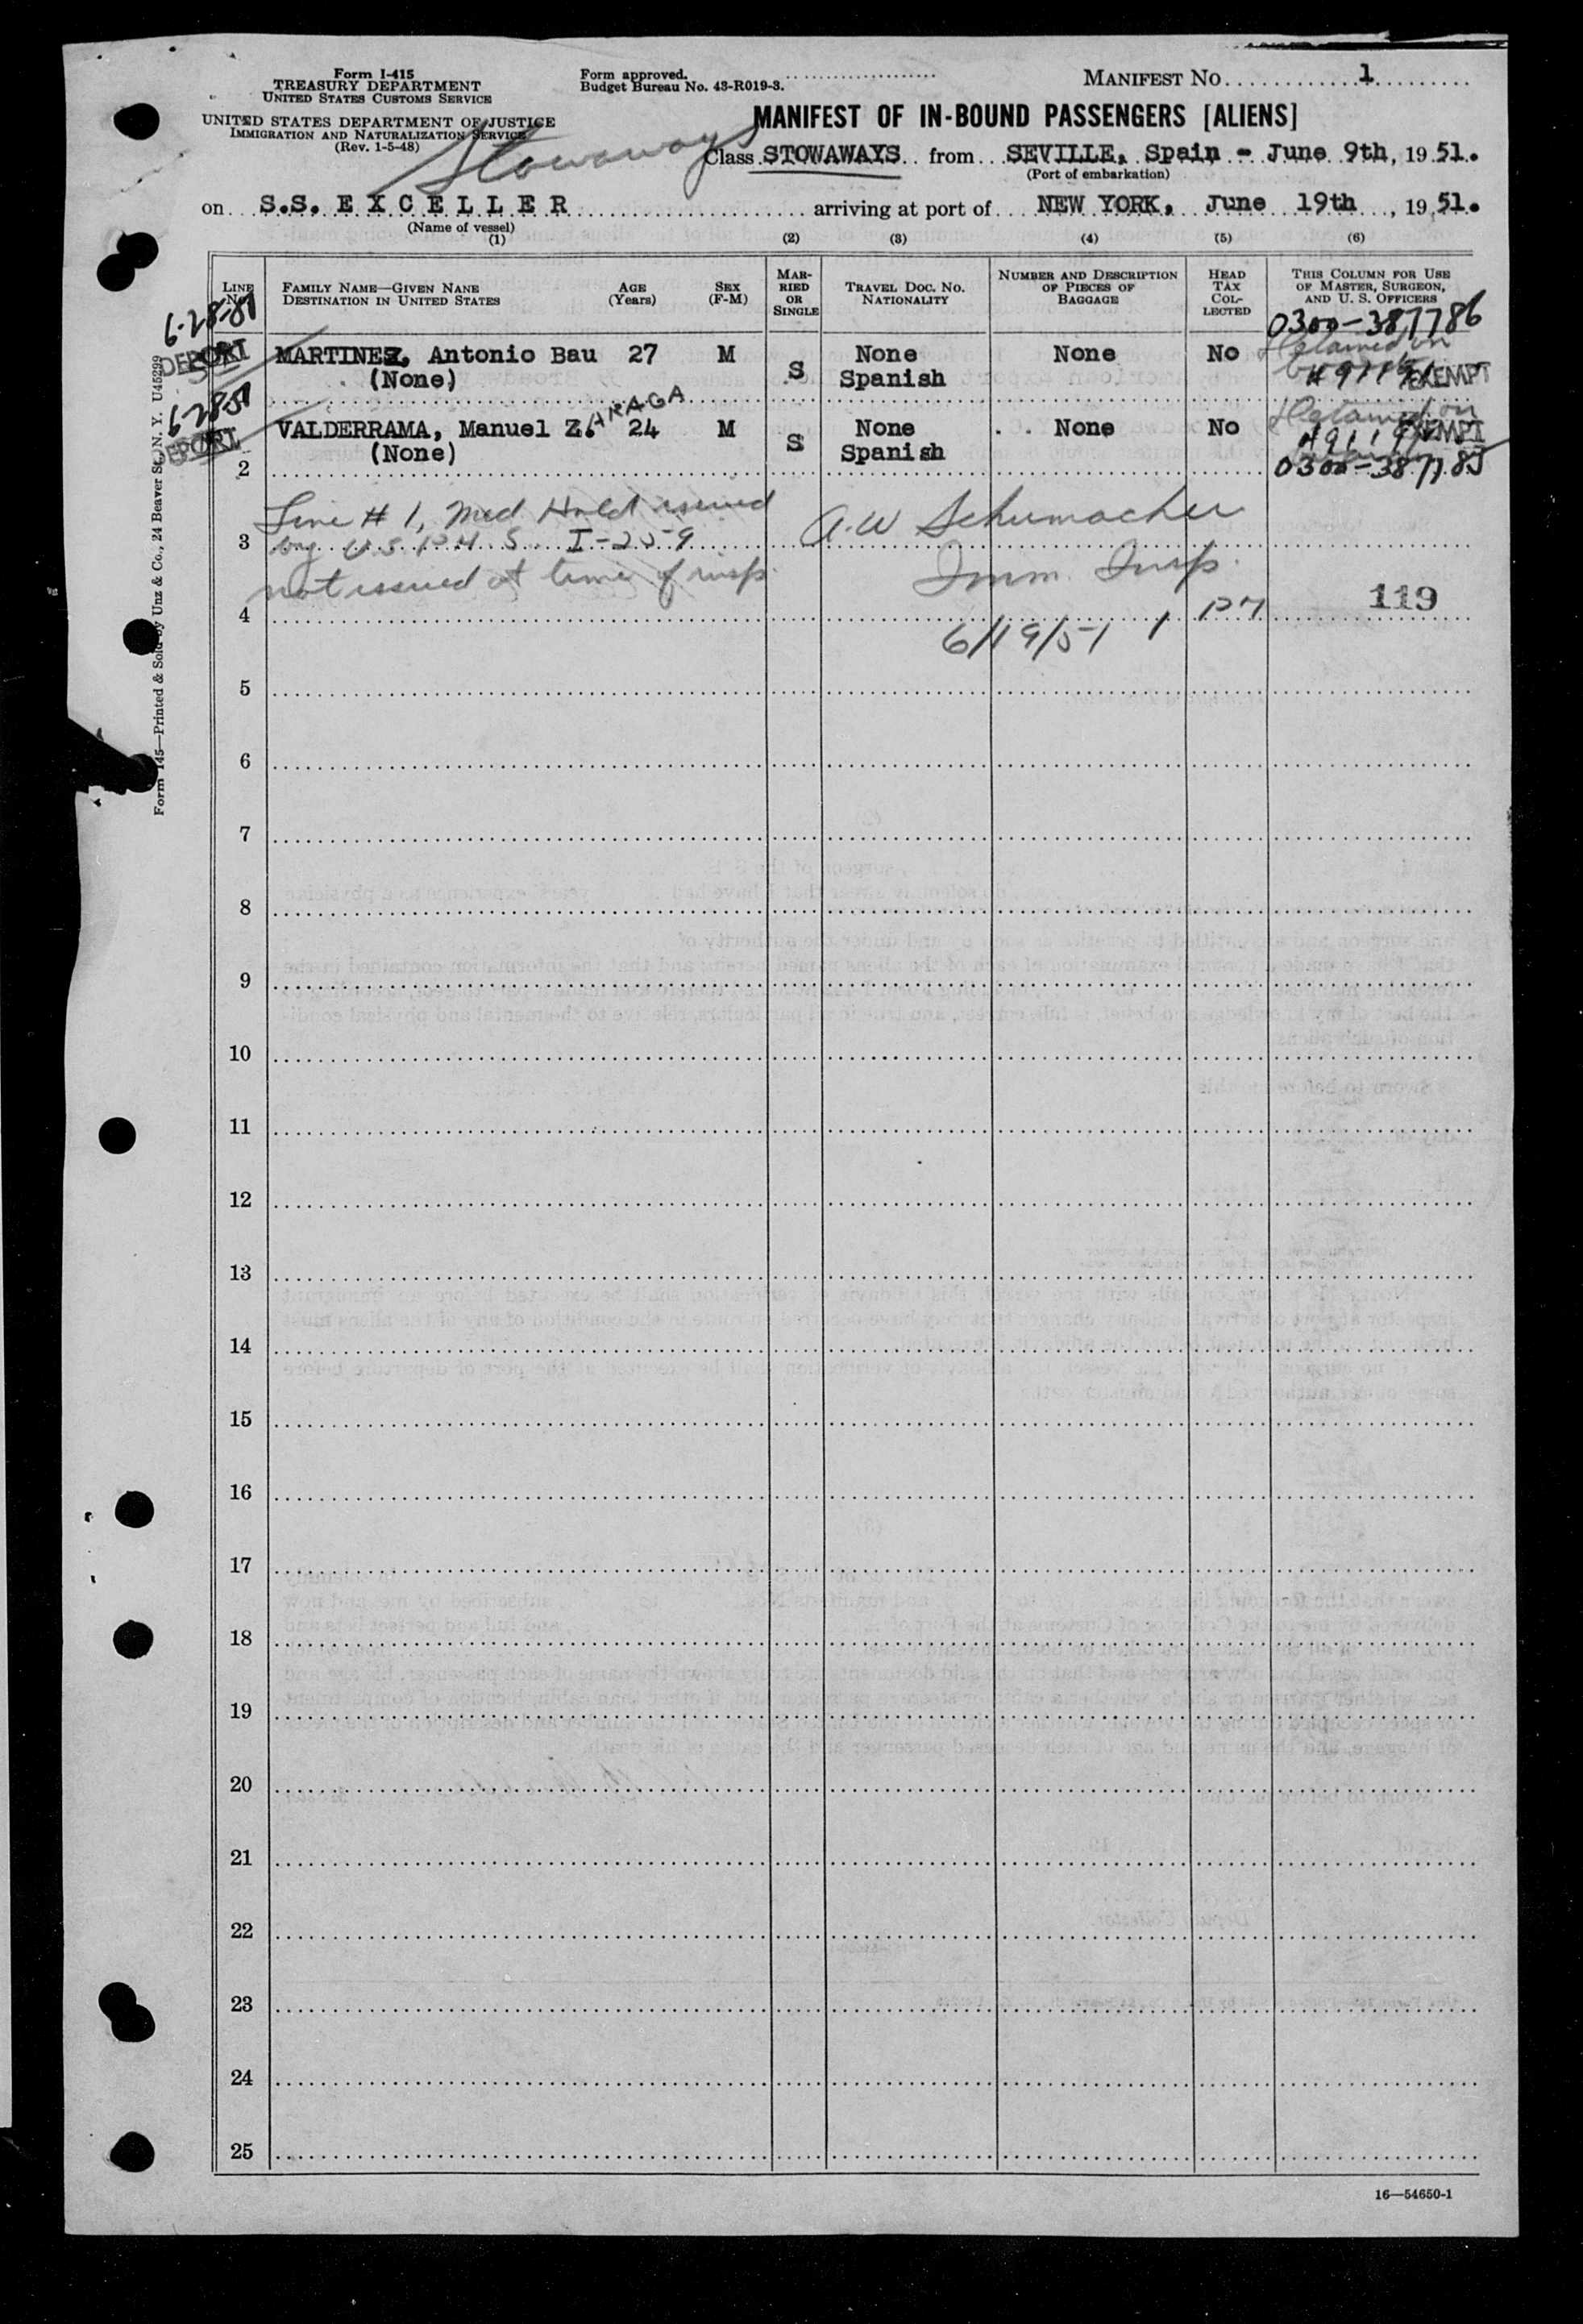 Form I-415
TREASURY DEPARTMENT
UNITED STATES CUSTOMS SERVICE
UNITED STATES DEPARTMENT OF JUSTICE
IMMIGRATION AND NATURALIZATION SERVICE
(Rev. 1-5-48)
Form approved.
Budget Bureau No. 43-R019-3.
MANIFEST NO. 1
MANIFEST OF IN-BOUND PASSENGERS [ALIENS]
Stowaways
Class STOWAWAYS from SEVILLE, Spain - June 9th, 19 51.
(Port of embarkation)
on S.S. EXCELLER arriving at port of NEW YORK, June 19th, 19 51.
(Name of vessel)
(1) (2) (3) (4) (5) (6)
LINE No. FAMILY NAME—GIVEN NANE DESTINATION IN UNITED STATES AGE (Years) SEX (F-M) MARRIED OR SINGLE TRAVEL DOC. NO. NATIONALITY NUMBER AND DESCRIPTION OF PIECES OF BAGGAGE HEAD TAX COLLECTED THIS COLUMN FOR USE OF MASTER, SURGEON, AND U. S. OFFICERS
6-28-51 0300-387786
DEPORT MARTINEZ, Antonio Bau 27 M S None None No Detained on
(None) Spanish EXEMPT
6-28-51 ARAGA Detained on
DEPORT VALDERRAMA, Manuel Z. 24 M S None None No EXEMPT
2 (None) Spanish 0300-387785
Line # 1, Med Hold issued A. W Schumacher
3 by U.S.P.H.S. I-259
not issued at time of insp. Imm. Insp.
4 119
6/19/51 1 PM
5
6
7
8
9
10
11
12
13
14
15
16
17
18
19
20
21
22
23
24
25
16—54650-1
Form 145—Printed & Sold by Unz & Co., 24 Beaver St., N. Y. U45299